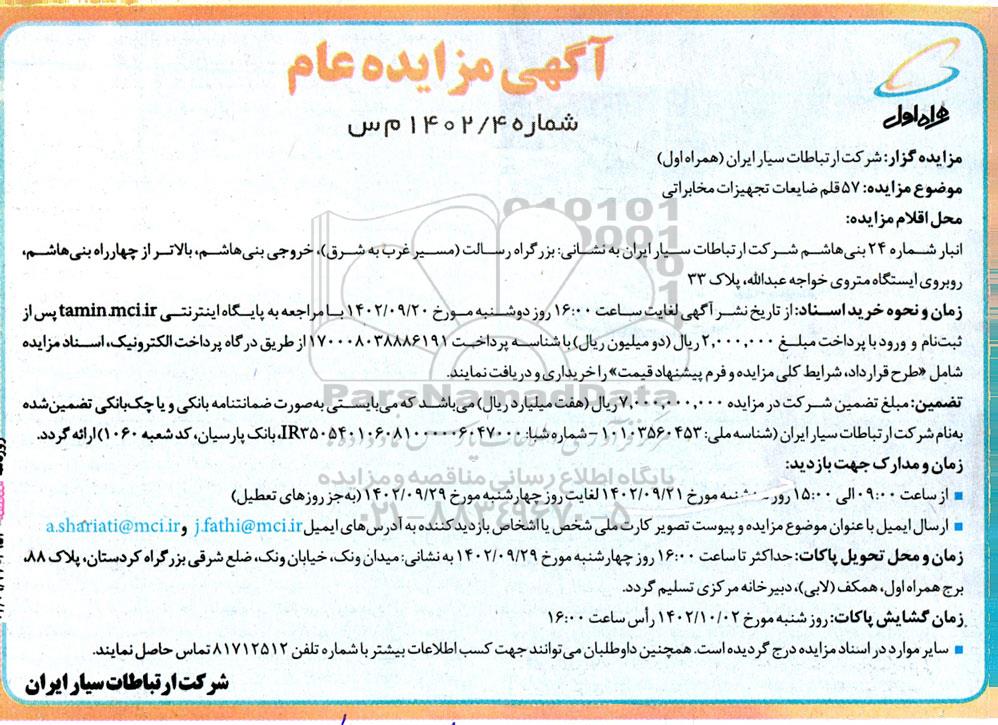 آگهی مزایده عام
شماره ۱۴۰۲/۴ م س
همراه اول
مزایده گزار: شرکت ارتباطات سیار ایران (همراه اول)
موضوع مزایده: ۵۷ قلم ضایعات تجهیزات مخابراتی
محل اقلام مزایده:
انبار شماره ۲۴ بنی‌هاشم شرکت ارتباطات سیار ایران به نشانی: بزرگراه رسالت (مسیر غرب به شرق)، خروجی بنی‌هاشم، بالاتر از چهارراه بنی‌هاشم،
روبروی ایستگاه متروی خواجه عبدالله، پلاک ۳۳
زمان و نحوه خرید اسناد: از تاریخ نشر آگهی لغایت ساعت ۱۶:۰۰ روز دوشنبه مورخ ۱۴۰۲/۰۹/۲۰ با مراجعه به پایگاه اینترنتی tamin.mci.ir پس از
ثبت‌نام و ورود با پرداخت مبلغ ۲,۰۰۰,۰۰۰ ریال (دو میلیون ریال) با شناسه پرداخت ۱۷۰۰۰۸۰۳۸۸۸۶۱۹۱ از طریق درگاه پرداخت الکترونیک، اسناد مزایده
شامل «طرح قرارداد، شرایط کلی مزایده و فرم پیشنهاد قیمت» را خریداری و دریافت نمایند.
ParsNamadData
تضمین: مبلغ تضمین شرکت در مزایده ۷,۰۰۰,۰۰۰,۰۰۰ ریال (هفت میلیارد ریال) می‌باشد که می‌بایستی به‌صورت ضمانتنامه بانکی و یا چک‌بانکی تضمین‌شده
به‌نام شرکت ارتباطات سیار ایران (شناسه ملی: ۱۰۱۰۳۵۶۰۴۵۳ - شماره شبا: IR۳۵۰۵۴۰۱۰۶۰۸۱۰۰۰۰۰۶۰۴۷۰۰۰، بانک پارسیان، کد شعبه ۱۰۶۰) ارائه گردد.
زمان و مدارک جهت بازدید:
پایگاه اطلاع رسانی مناقصه و مزایده
■ از ساعت ۰۹:۰۰ الی ۱۵:۰۰ روز مورخ ۱۴۰۲/۰۹/۲۱ لغایت روز چهارشنبه مورخ ۱۴۰۲/۰۹/۲۹ (به‌جز روزهای تعطیل)
۰۲۱-۸۸۳۴۹۶۷۰-۵
■ ارسال ایمیل با عنوان موضوع مزایده و پیوست تصویر کارت ملی شخص یا اشخاص بازدیدکننده به آدرس‌های ایمیل j.fathi@mci.ir و a.shariati@mci.ir
زمان و محل تحویل پاکات: حداکثر تا ساعت ۱۶:۰۰ روز چهارشنبه مورخ ۱۴۰۲/۰۹/۲۹ به نشانی: میدان ونک، خیابان ونک، ضلع شرقی بزرگراه کردستان، پلاک ۸۸،
برج همراه اول، همکف (لابی)، دبیرخانه مرکزی تسلیم گردد.
زمان گشایش پاکات: روز شنبه مورخ ۱۴۰۲/۱۰/۰۲ رأس ساعت ۱۶:۰۰
■ سایر موارد در اسناد مزایده درج گردیده است. همچنین داوطلبان می‌توانند جهت کسب اطلاعات بیشتر با شماره تلفن ۸۱۷۱۲۵۱۲ تماس حاصل نمایند.
شرکت ارتباطات سیار ایران